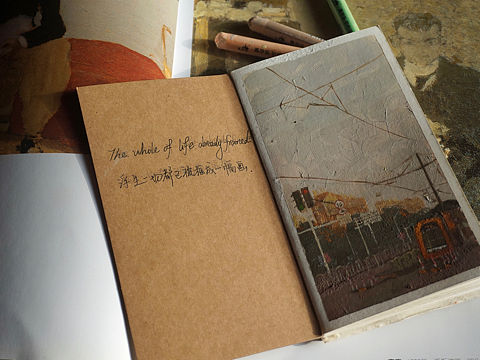 The whole of life already framed
浮生一切都已被成一幅画.